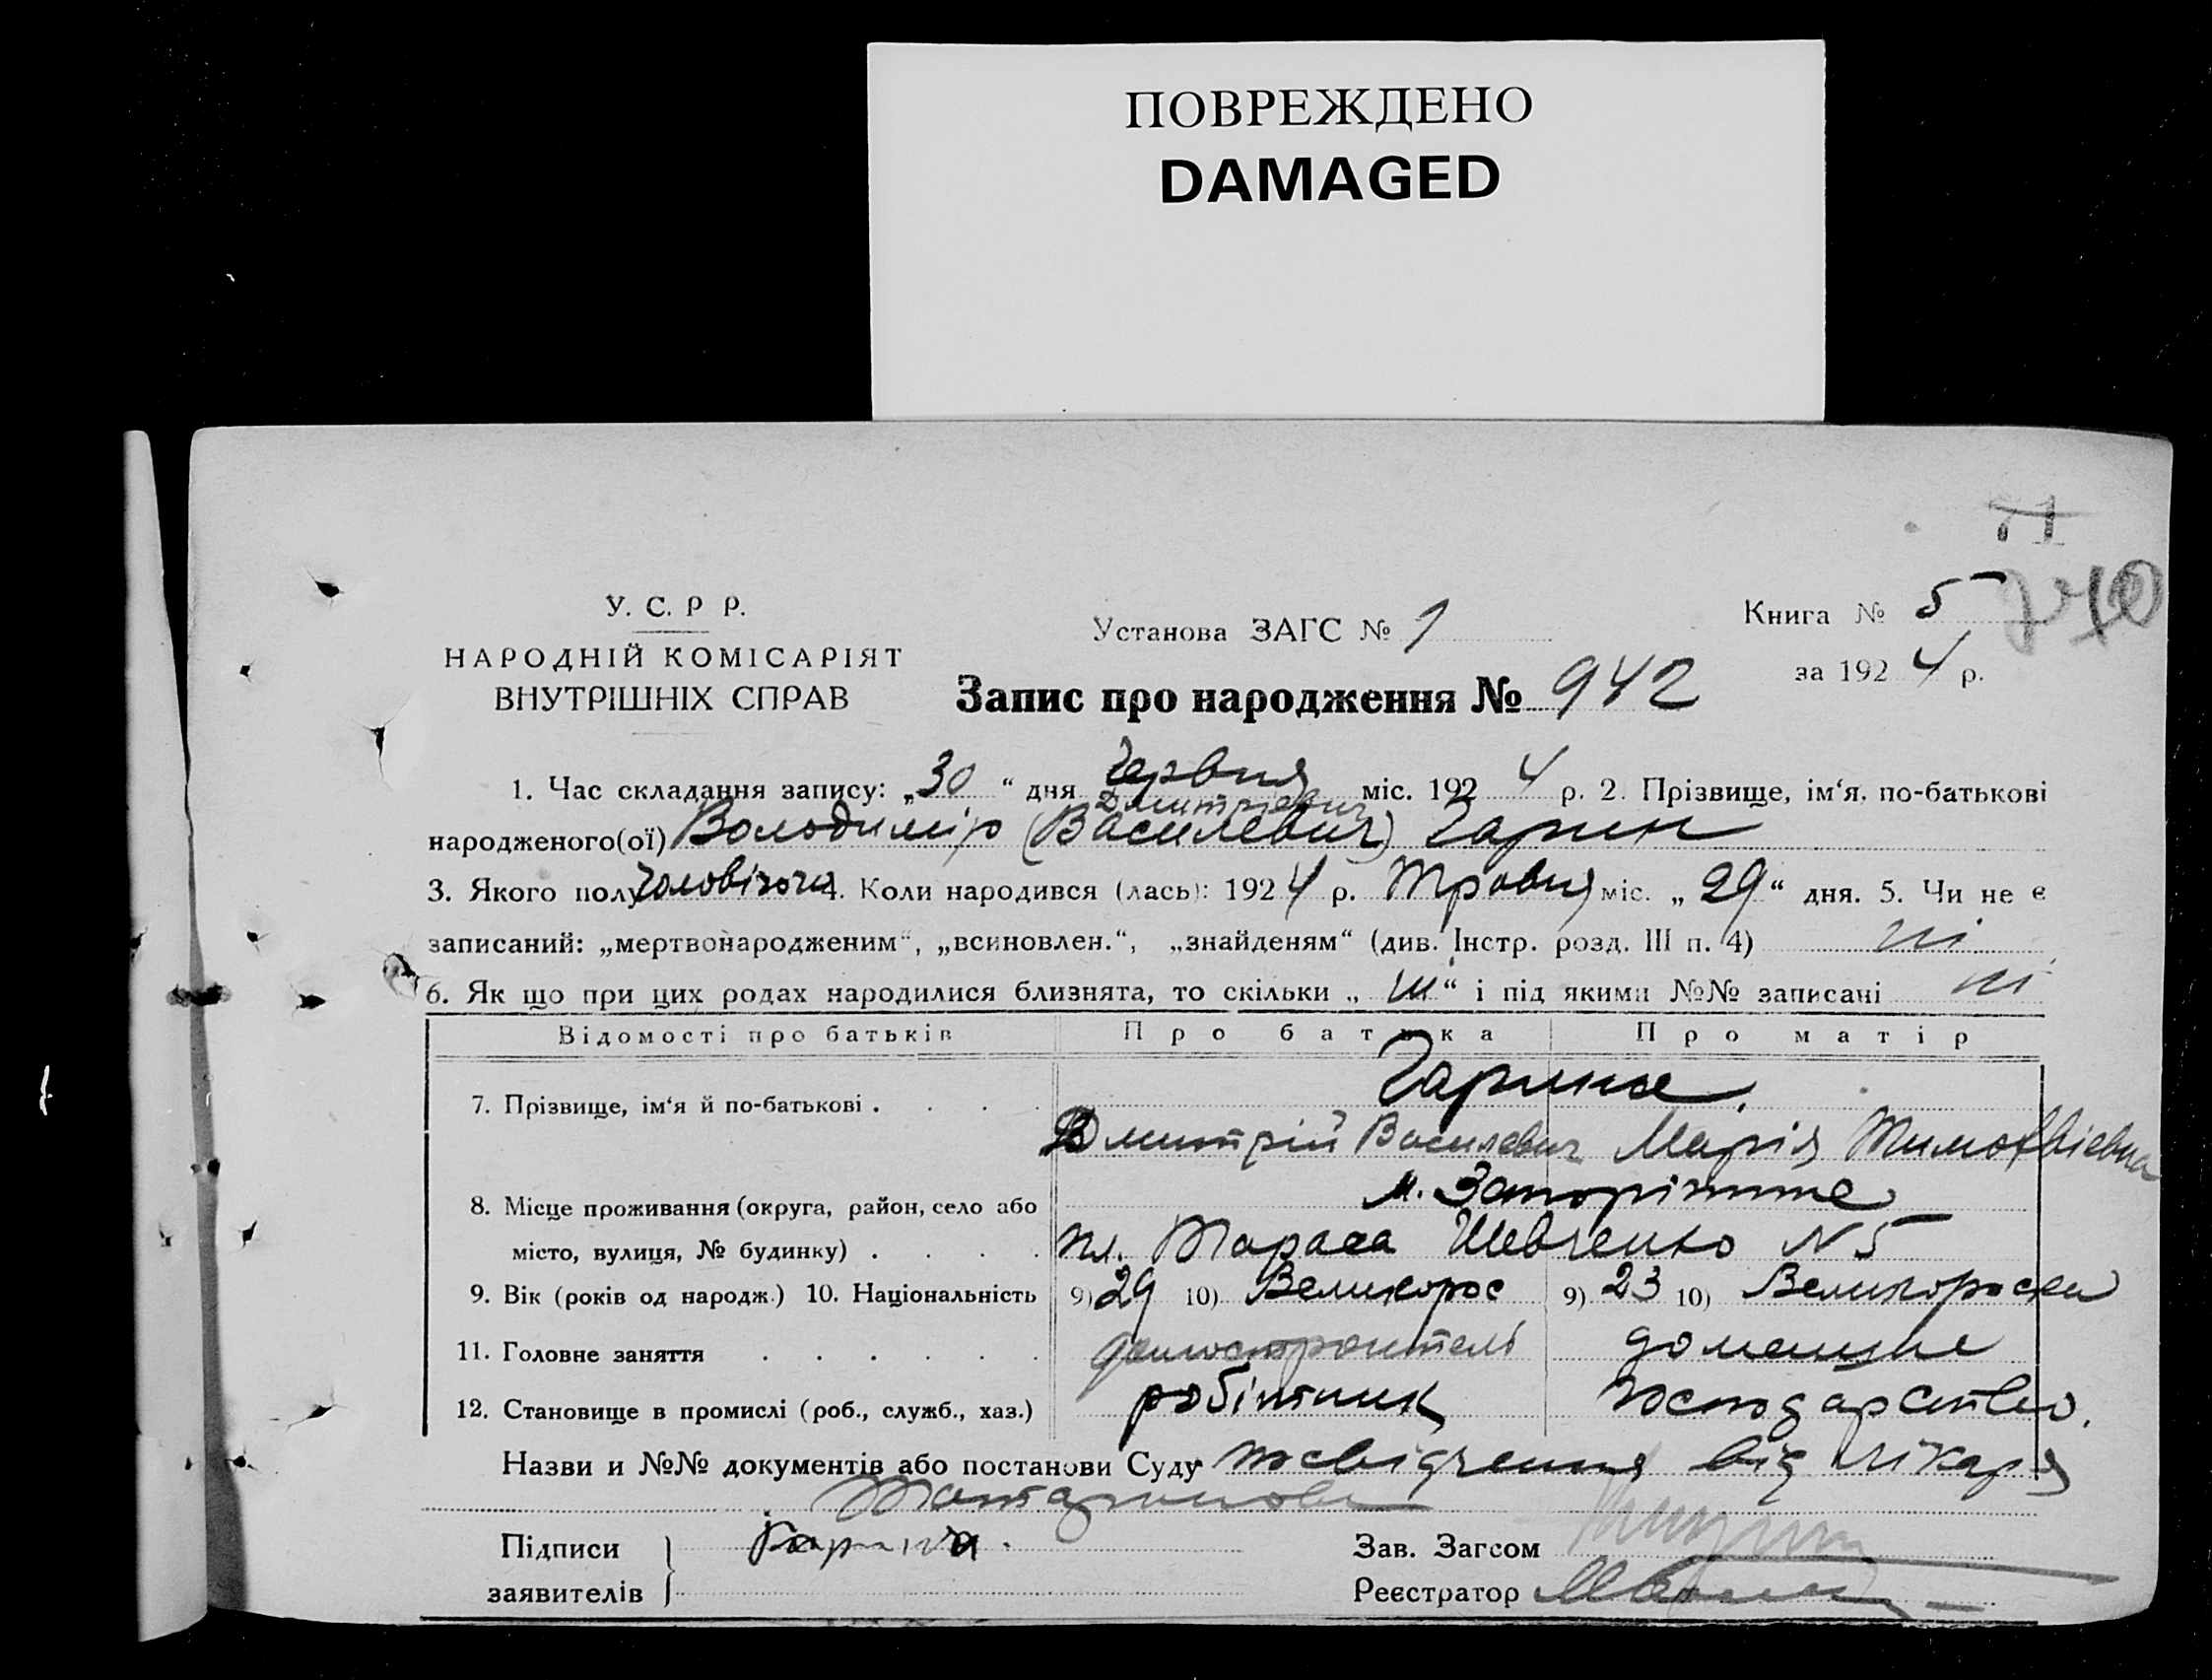 ПОВРЕЖДЕНО
DAMAGED
71
У. С. Р Р.
НАРОДНІЙ КОМІСАРІЯТ
ВНУТРІШНІХ СПРАВ
Установа ЗАГС № 1
Книга № 5
за 192 4 р.
Запис про народження № 942
1. Час складання запису: „30“ дня Червня міс. 192 4 р. 2. Прізвище, ім‘я, по-батькові
Дмитріевич
народженого(ої) Володимір (Василевич) Гарин
3. Якого полу Чоловічого 4. Коли народився (лась): 192 4 р. Травня міс. „ 29 “ дня. 5. Чи не є
записаний: „мертвонародженим“, „всиновлен.“, „знайденям“ (див. Інстр. розд. III п. 4) ні
6. Як що при цих родах народилися близнята, то скільки „ ні “ і під якими №№ записані ні
Відомості про батьків Про батька Про матір
Гарини
7. Прізвище, ім‘я й по-батькові . . . .
Дмитрій Василевич Марія Тимофвіевна
м. Запоріжже
8. Місце проживання (округа, район, село або
місто, вулиця, № будинку) . . . . пл. Тараса Шевченко N 5
9. Вік (років од народж.) 10. Національність 9) 29 10) Великорос 9) 23 10) Великороска
11. Головне заняття . . . . . . домашне
12. Становище в промислі (роб., служб., хаз.) робітник господарство.
Назви и №№ документів або постанови Суду посвідчення від лікаря
Підписи
заявителів
Гарина.
Зав. Загсом
Реєстратор